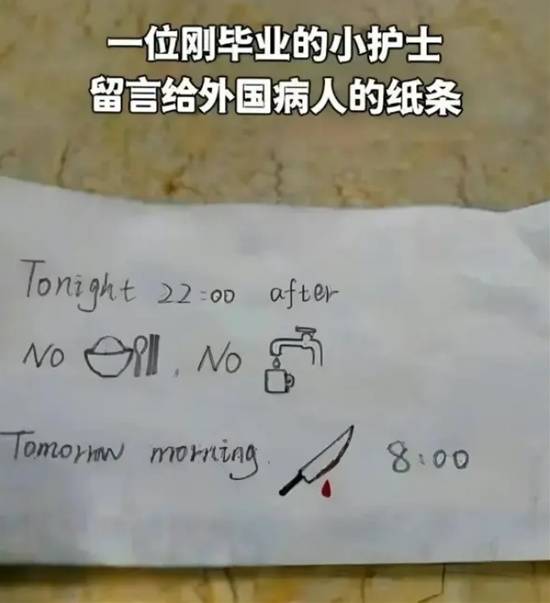 一位刚毕业的小护士
留言给外国病人的纸条
Tonight 22:00 after
No , No
Tomorrow morning. 8:00